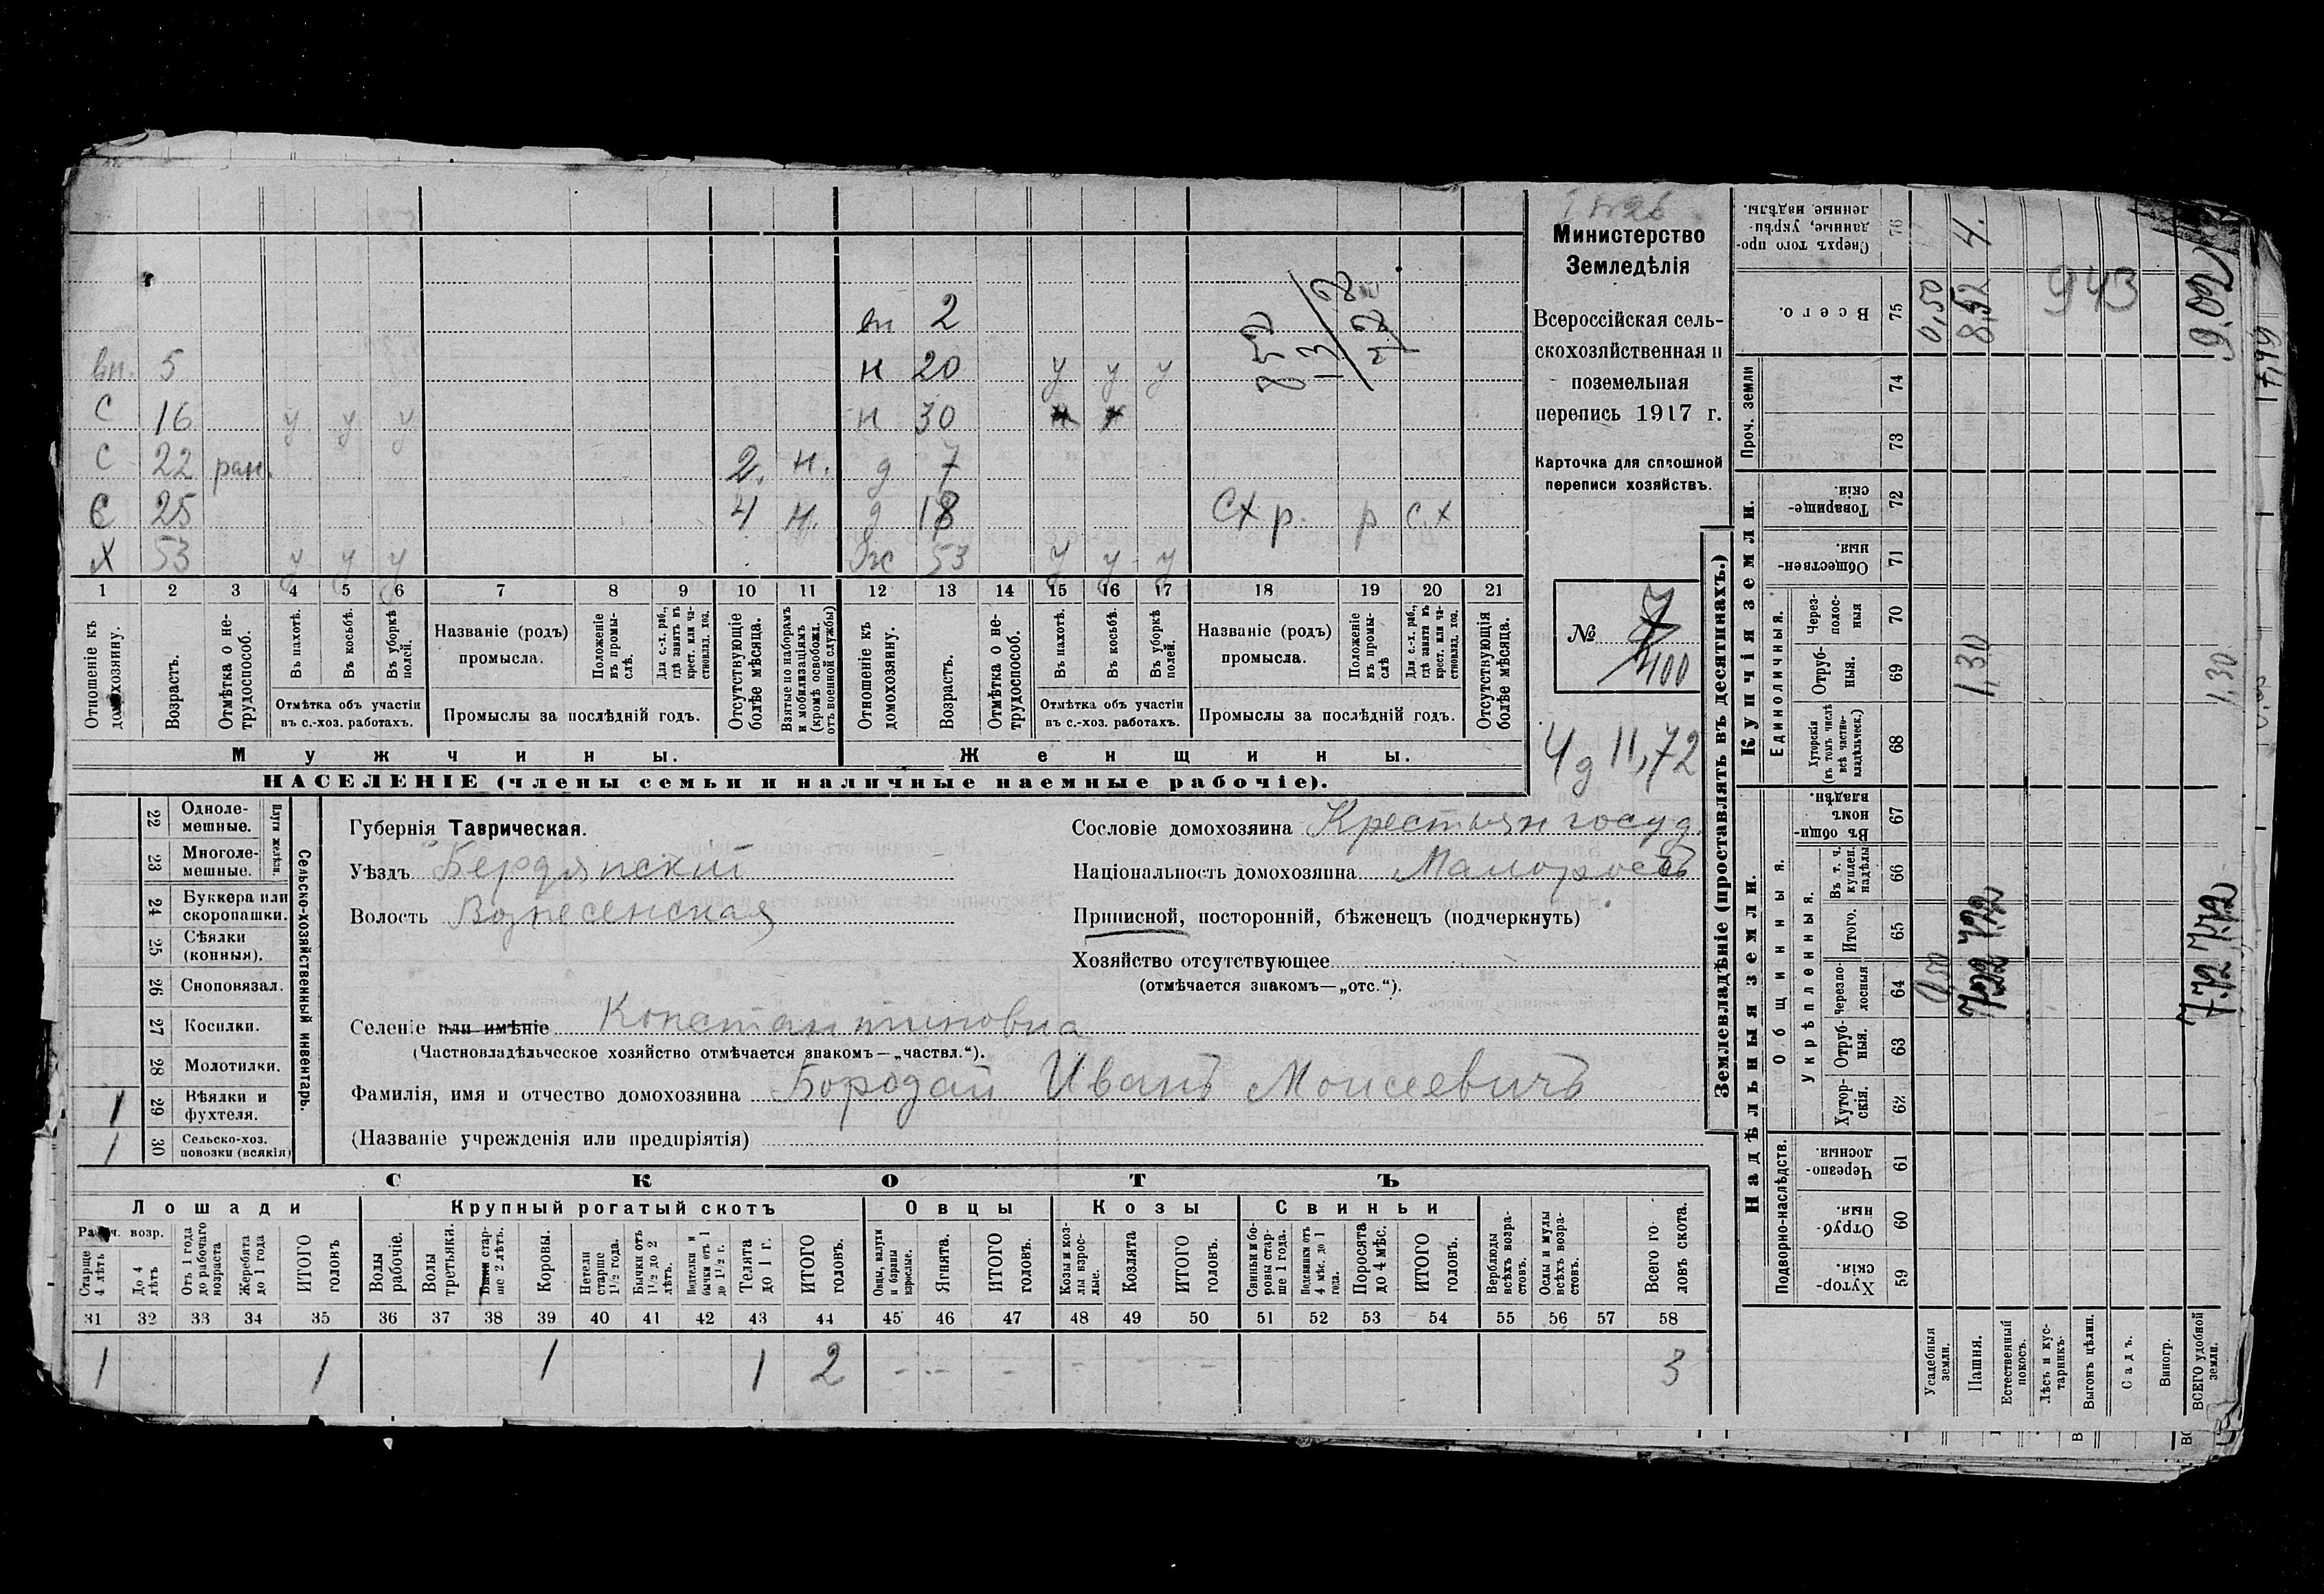 Министерство
Земледѣлія
Всероссійская сель-
скохозяйственная и
поземельная
перепись 1917 г.
Карточка для сплошной
переписи хозяйствъ.
№ 7
400
4 д 11,72
вп 2
вп. 5 н 20 у у у
С 16 у у у н 30
С 22 ран. 2. н. д 7
С 25 4 н. д 18 Сх р. р с.х
Х 53 у у у ж 53 у у у
1 2 3 4 5 6 7 8 9 10 11 12 13 14 15 16 17 18 19 20 21
Отношеніе къ домохозяину.
Возрастъ.
Отмѣтка о не-трудоспособ.
Въ пахотѣ.
Въ косьбѣ.
Въ уборкѣ полей.
Отмѣтка объ участіи въ с.-хоз. работахъ.
Названіе (родъ) промысла.
Положеніе въ промы-слѣ.
Для с.-х. раб., гдѣ занятъ въ крест. или ча-стновлад. хоз.
Промыслы за послѣдній годъ.
Отсутствующіе болѣе мѣсяца.
Взятые по наборамъ и мобилизаціямъ (кромѣ освобожд. отъ военной службы)
Отношеніе къ домохозяину.
Возрастъ.
Отмѣтка о не-трудоспособ.
Въ пахотѣ.
Въ косьбѣ.
Въ уборкѣ полей.
Отмѣтка объ участіи въ с.-хоз. работахъ.
Названіе (родъ) промысла.
Положеніе въ промы-слѣ
Для с.-х. раб., гдѣ занятъ въ крест. или ча-стновлад. хоз.
Промыслы за послѣдній годъ.
Отсутствующія болѣе мѣсяца.
Мужчины. Женщины.
НАСЕЛЕНІЕ (члены семьи и наличные наемные рабочіе).
Сельско-хозяйственный инвентарь.
Плуги желѣзн.
22 Одноле-мешные.
23 Многоле-мешные.
24 Буккера или скоропашки.
25 Сѣялки (конныя).
26 Сноповязал.
27 Косилки.
28 Молотилки.
1 29 Вѣялки и фухтеля.
1 30 Сельско-хоз. повозки (всякія)
Губернія Таврическая.
Уѣздъ Бердянскій
Волость Вознесенская
Сословіе домохозяина Крестьян госуд.
Національность домохозяина Малоросъ
Приписной, посторонній, бѣженецъ (подчеркнуть)
Хозяйство отсутствующее
(отмѣчается знакомъ—„отс.“).
Селеніе или имѣніе Константиновка
(Частновладѣльческое хозяйство отмѣчается знакомъ—„частвл.“).
Фамилія, имя и отчество домохозяина Бородай Иванъ Моисеевичъ
(Названіе учрежденія или предпріятія)
СКОТЪ
Лошади Крупный рогатый скотъ Овцы Козы Свиньи
Рабоч. возр.
Старше 4 лѣтъ
До 4 лѣтъ
Отъ 1 года до рабочаго возраста
Жеребята до 1 года
ИТОГО головъ
Волы рабочіе.
Волы третьяки.
Быки стар-ше 2 лѣтъ.
Коровы.
Нетели старше 1½ года.
Бычки отъ 1½ до 2 лѣтъ.
Подтелки и бычки отъ 1 до 1½ г.
Телята до 1 г.
ИТОГО головъ.
Овцы, валухи и бараны взрослые.
Ягнята.
ИТОГО головъ.
Козы и коз-лы взрос-лые.
Козлята
ИТОГО головъ.
Свиньи и бо-ровы стар-ше 1 года.
Подсвинки отъ 4 мѣс. до 1 года.
Поросята до 4 мѣс.
ИТОГО головъ.
Верблюды всѣхъ возра-стовъ.
Ослы и мулы всѣхъ возра-стовъ.
Всего го-ловъ скота.
31 32 33 34 35 36 37 38 39 40 41 42 43 44 45 46 47 48 49 50 51 52 53 54 55 56 57 58
1 1 1 1 2 - - - - - - 3
Землевладѣніе (проставлять въ десятинахъ.)
Надѣльныя земли. Купчія земли. Проч. земли
Подворно-наслѣдств. Общинныя. Единоличныя.
Укрѣпленныя.
Хутор-скія. 59
Отруб-ныя. 60
Черезпо-лосныя. 61
Хутор-скія. 62
Отруб-ныя. 63
Черезпо-лосныя 64
Итого. 65
Въ т. ч. куплен. надѣлы 66
Въ общи-номъ владѣн. 67
Хуторскія (въ томъ числѣ всѣ частно-владѣльческ.) 68
Отруб-ныя. 69
Через-полос-ныя 70
Обществен-ныя. 71
Товарище-скія. 72
73
74
Всего. 75
Сверхъ того про-данные, укрѣп-ленные надѣлы. 76
Усадебныя земли. 0,50 0,50
Пашня. 7,22 7,22 1,30 8,52 4.
Естественный покосъ.
Лѣсъ и кус-тарникъ.
Выгонъ цѣлин.
Садъ.
Виногр.
ВСЕГО удобной земли. 7,72 7,72 1,30 9,02
943
17,99